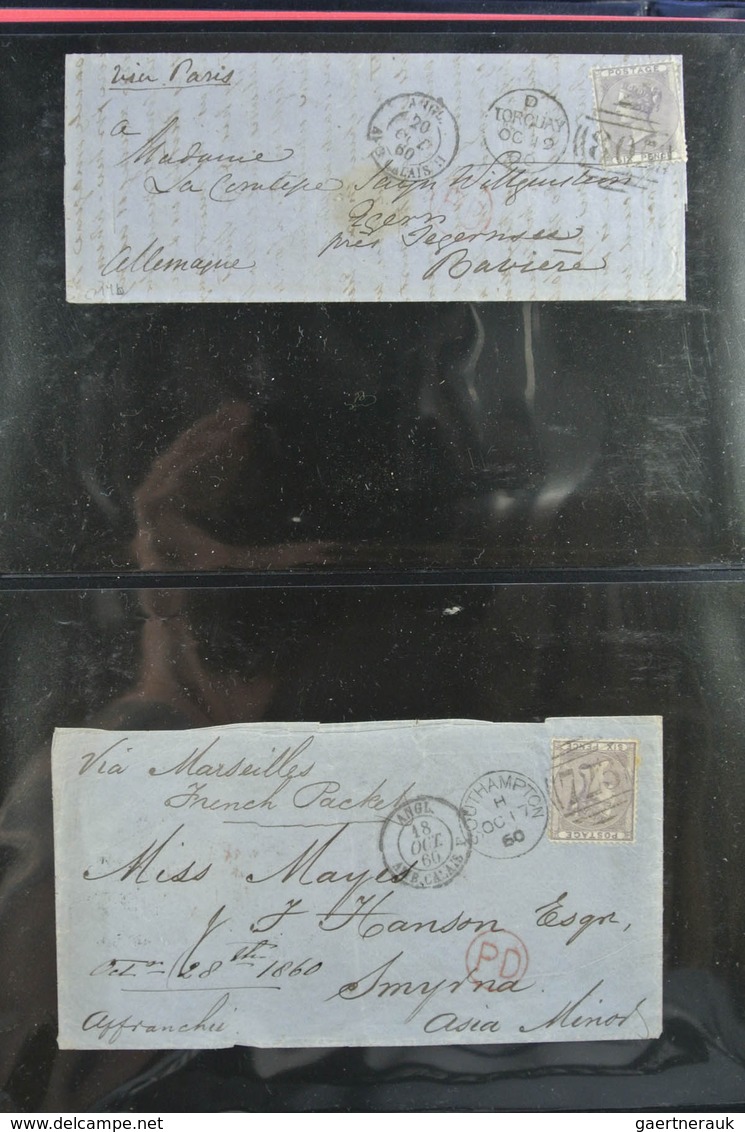 via Paris
à
Madame
La Comtesse Sayn Wittgenstein
près Tegernsee
Allemagne
Bavière
ANGL.
20
60
AMB. CALAIS H
D
TORQUAY
OC 19
60
POSTAGE
SIX PENCE
Via Marseilles
French Packet
ANGL.
18
OCT.
60
AMB. CALAIS F
SOUTHAMPTON
H
OC 17
60
SIX PENCE
723
POSTAGE
Miss Mayes
J Hanson Esqr,
28th 1860
PD
Smyrna
Affranchie
Asia Minor
gaertnerauk